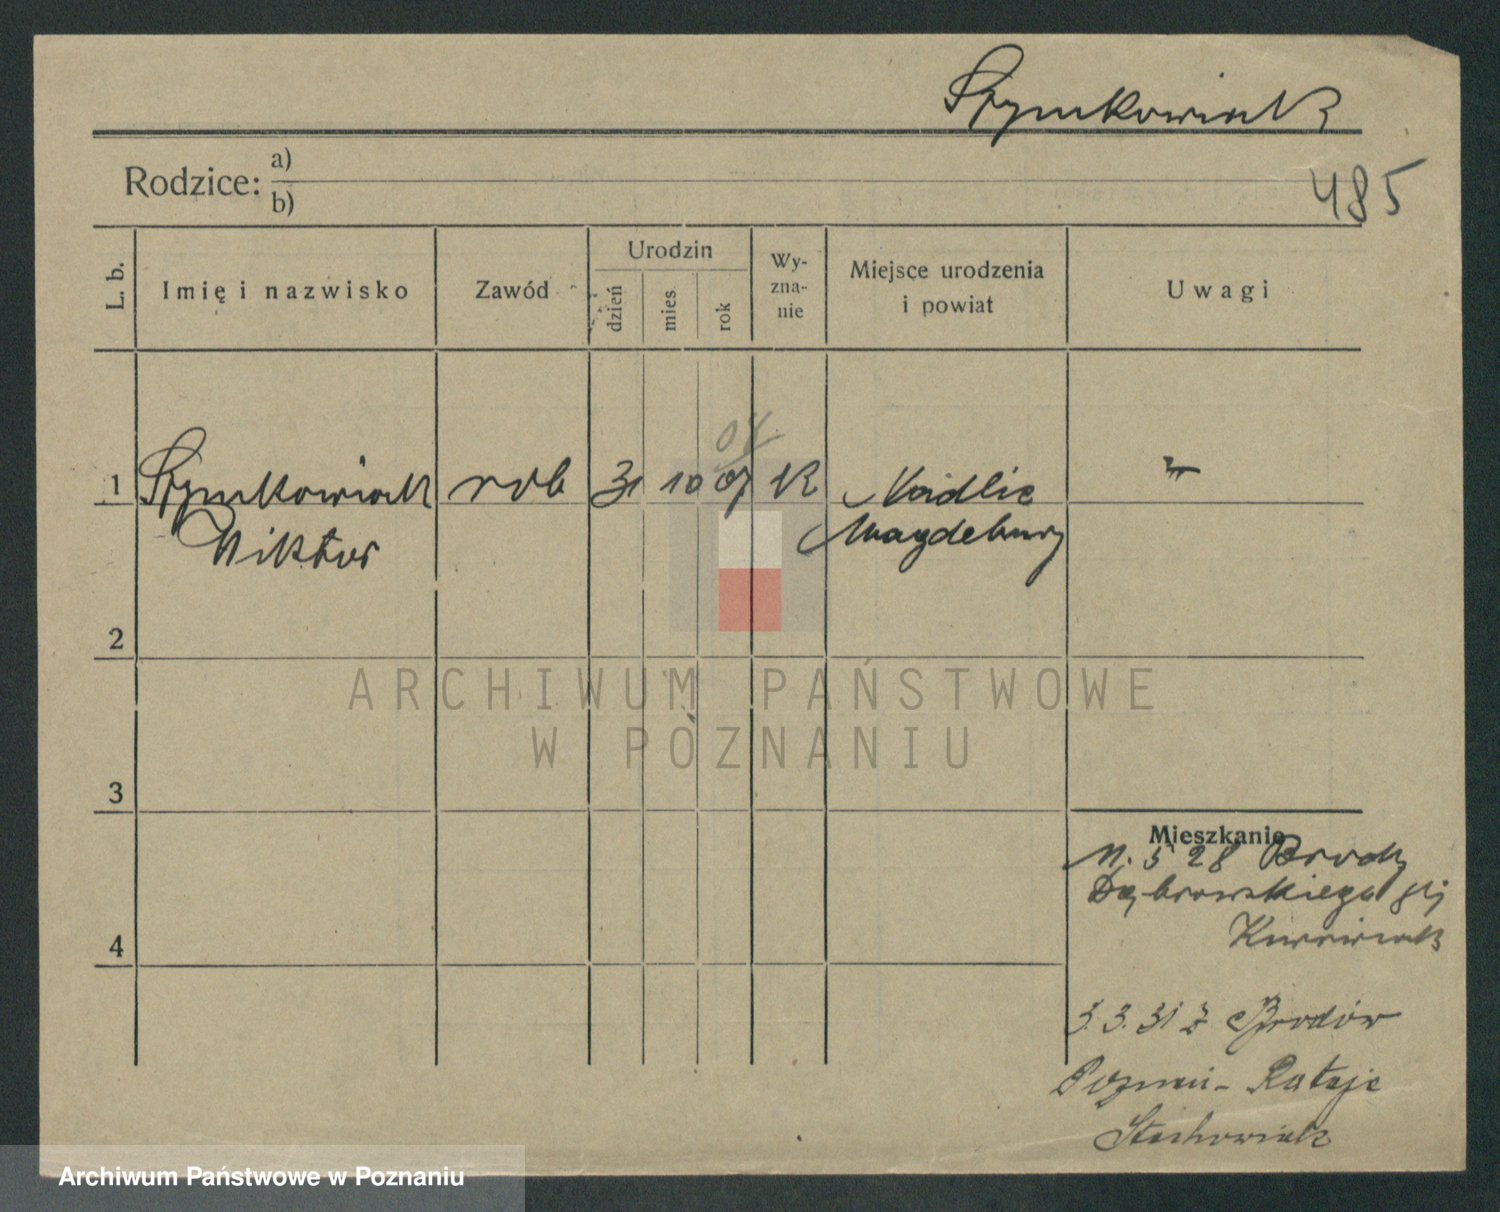 Szymkowiak
Rodzice: a)
b)
485
L. b.
Imię i nazwisko
Zawód
Urodzin
dzień
mies
rok
Wy-
zna-
nie
Miejsce urodzenia
i powiat
Uwagi
04
1 Szymkowiak rob 31 10 07 K
Wiktor
Magdeburg
2
3
4
ARCHIWUM PAŃSTWOWE
W POZNANIU
Mieszkanie
5 28 Brody
Dąbrowskiego
3.3.31 z Brodów
Poznań - Rataje
Stachowiak
Archiwum Państwowe w Poznaniu